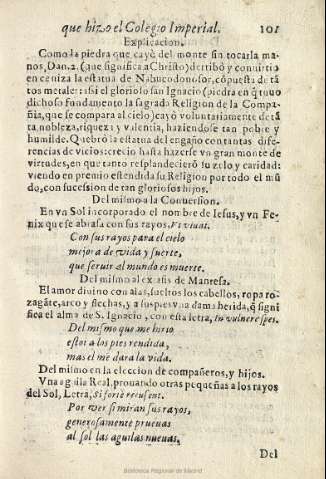 que hizo el Colegio Imperial. 101
Explicacion.
Como la piedra que cayò del monte sin tocarla ma
nos, Dan. 2. (que significa a Christo) derribò y conuirtio
en ceniza la estatua de Nabucodonosor, cõpuesta de tã
tos metales: assi el glorioso san Ignacio (piedra en q̃ tuuo
dichoso fundamento la sagrada Religion de la Compa-
ñia, que se compara al cielo) cayó voluntariamente de tã
ta nobleza, riqueza y valentia, haziendose tan pobre y
humilde. Quebrò la estatua del engaño con tantas dife-
rencias de vicios: crecio hasta hazerse vn gran monte de
virtudes, en que tanto resplandecierõ su zelo y caridad:
viendo en premio estendida su Religion por todo el mũ
do, con sucession de tan gloriosos hijos.
Del mismo a la Conuersion.
En vn Sol incorporado el nombre de Iesus, y vn Fe-
nix que se abrasa con sus rayos, Vt viuat.
Con sus rayos para el cielo
mejora de vida y suerte,
que seruir al mundo es muerte.
Del mismo al extasis de Manresa.
El amor diuino con alas, sueltos los cabellos, ropa ro-
zagãte, arco y flechas, y a sus pies vna dama herida, q̃ signi
fica el alma de S. Ignacio, con esta letra, In vulnere spes.
Del mismo que me hirio
estoi a los pies rendida,
mas el me dara la vida.
Del mismo en la eleccion de compañeros, y hijos.
Vna aguila Real, prouando otras pequeñas a los rayos
del Sol, Letra, Si fortè recusent.
Por ver si miran sus rayos,
generosamente prueuas
al sol las aguilas nueuas,
Del
Biblioteca Regional de Madrid